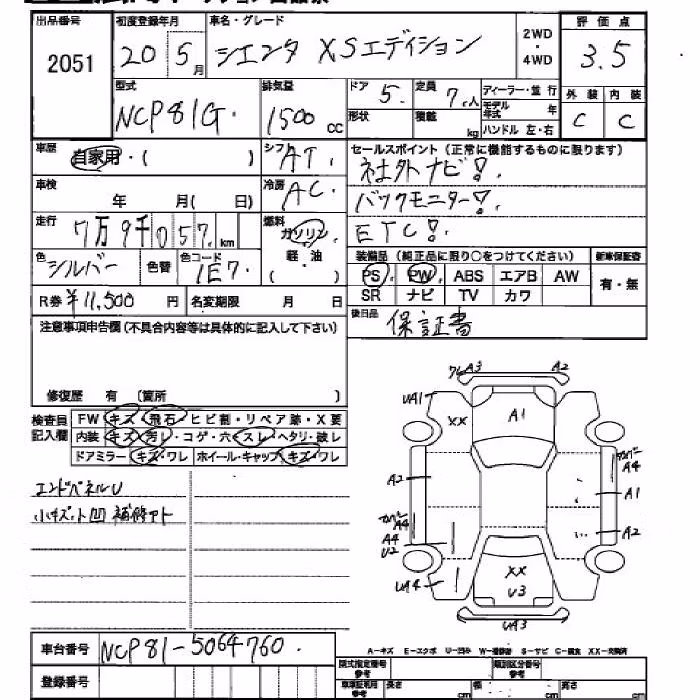 出品番号 初度登録年月 車名・グレード 評価点
2051 20 5月 シエンタ XSエディション 2WD・4WD 3.5
型式 排気量 ドア 5. 定員 7人 ディーラー・並行 外装 内装
NCP81G. 1500cc 形状 積載 kg モデル年式 年 ハンドル 左・右 C C
車歴 自家用・( ) シフト AT. セールスポイント(正常に機能するものに限ります)
車検 年 月( 日) 冷房 AC. 社外ナビ!.
バックモニター!.
走行 7万9千057.km 燃料 ガソリン 軽・油 ETC!.
色 シルバー 色替 色コード 1E7. 装備品(純正品に限り○をつけてください) 新車保証書
PS PW ABS エアB AW 有・無
R券 ¥11,500 円 名変期限 月 日 SR ナビ TV カワ
注意事項申告欄(不具合内容等は具体的に記入して下さい) 後日品 保証書
修復歴 有 (箇所 )
検査員記入欄 FW キズ・飛石・ヒビ割・リペア跡・X要
内装 キズ・汚レ・コゲ・穴・スレ・ヘタリ・破レ
ドアミラー キズ・ワレ ホイール・キャップ キズ・ワレ
エンドパネルU
小キズ小凹 補修アト
A3 A2
UA1 XX A1
A2 A4
A1
A4 A4 U2 A2
UA4 XX U3
UA3
A-キズ E-エクボ U-凹み W-補修跡 S-サビ C-腐食 XX-交換済
車台番号 NCP81-5064760.
登録番号
型式指定番号 参考 類別区分番号 参考
長さ cm 幅 cm 高さ cm